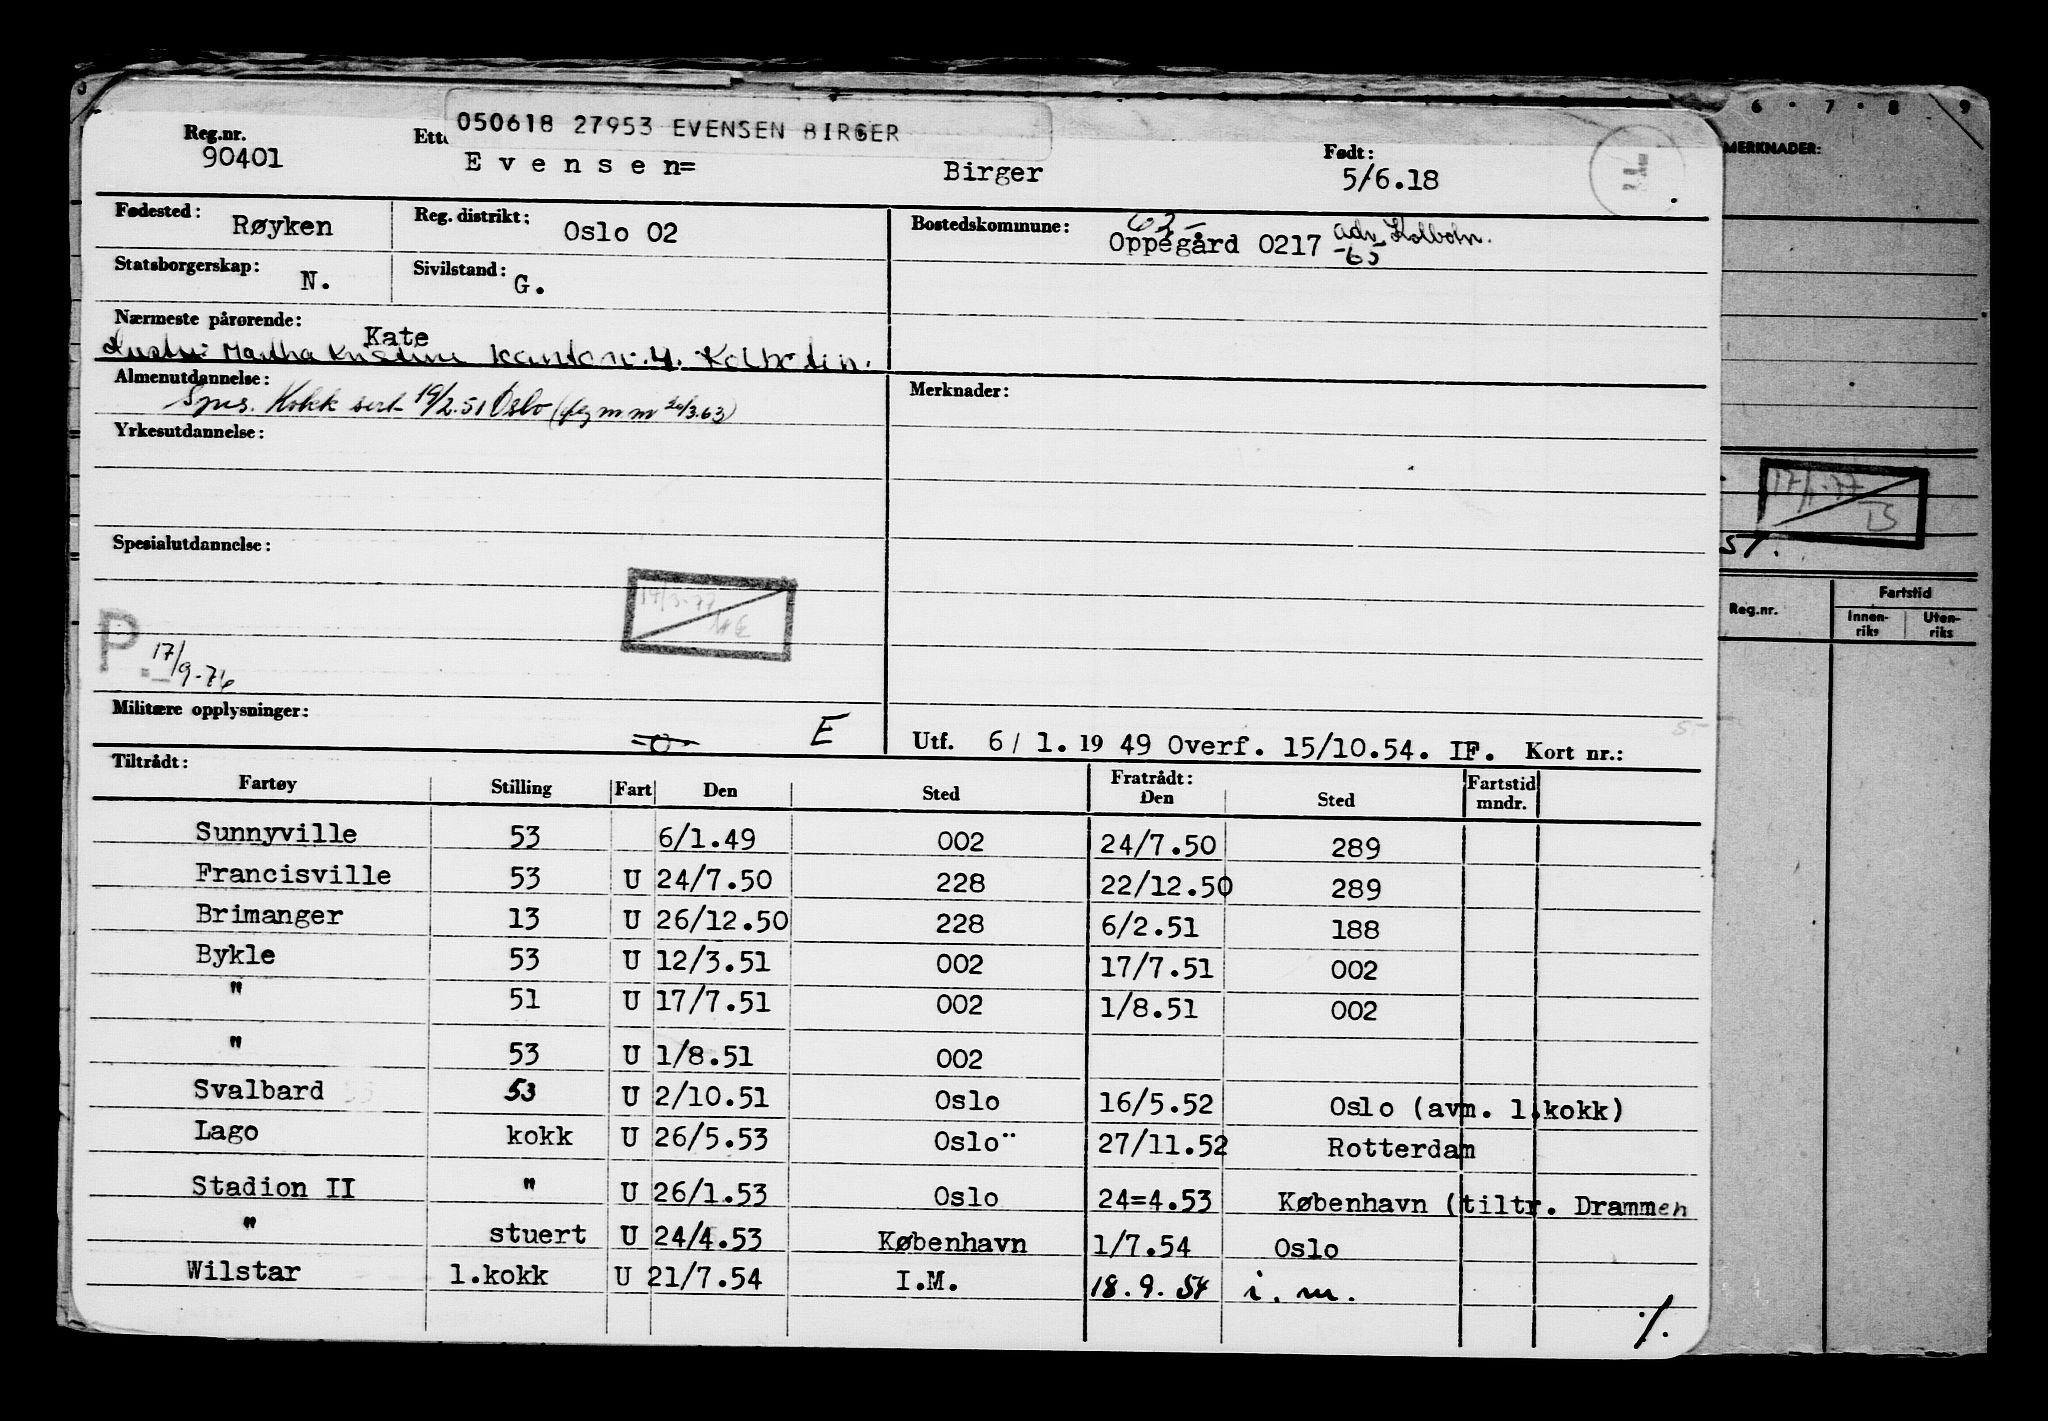 6 . 7 . 8 9
050618 27953 EVENSEN BIRGER
Reg.nr. Ette Født:
90401 E v e n s e n= Birger 5/6.18
MERKNADER:
Fødested: Røyken Reg. distrikt: Oslo 02 Bostedskommune: 63- Oppegård 0217 adr Kolbotn.
-65
Statsborgerskap: N. Sivilstand: G.
Nærmeste pårørende: Kate
Hustru Martha Kristine Kolbotn.
Almenutdannelse: Merknader:
Spes. Kokk sert 19/2.51 Oslo (fg m m 20/3.63)
Yrkesutdannelse:
17/1-77
IS
Spesialutdannelse:
17/3-77
P. 17/9-76
Militære opplysninger: =0= E
Utf. 6/ 1. 19 49 Overf. 15/10.54. IF. Kort nr.:
Reg.nr. Fartstid
Innen-riks Uten-riks
Tiltrådt: Fratrådt:
Fartøy Stilling Fart Den Sted Den Sted Fartstid mndr.
Sunnyville 53 6/1.49 002 24/7.50 289
Francisville 53 U 24/7.50 228 22/12.50 289
Brimanger 13 U 26/12.50 228 6/2.51 188
Bykle 53 U 12/3.51 002 17/7.51 002
" 51 U 17/7.51 002 1/8.51 002
" 53 U 1/8.51 002
Svalbard 53 U 2/10.51 Oslo 16/5.52 Oslo (avm. 1.kokk)
Lago kokk U 26/5.53 Oslo¨ 27/11.52 Rotterdam
Stadion II " U 26/1.53 Oslo 24=4.53 København (tiltr. Drammen
" stuert U 24/4.53 København 1/7.54 Oslo
Wilstar 1.kokk U 21/7.54 I.M. 18.9.54 i.m.
./.